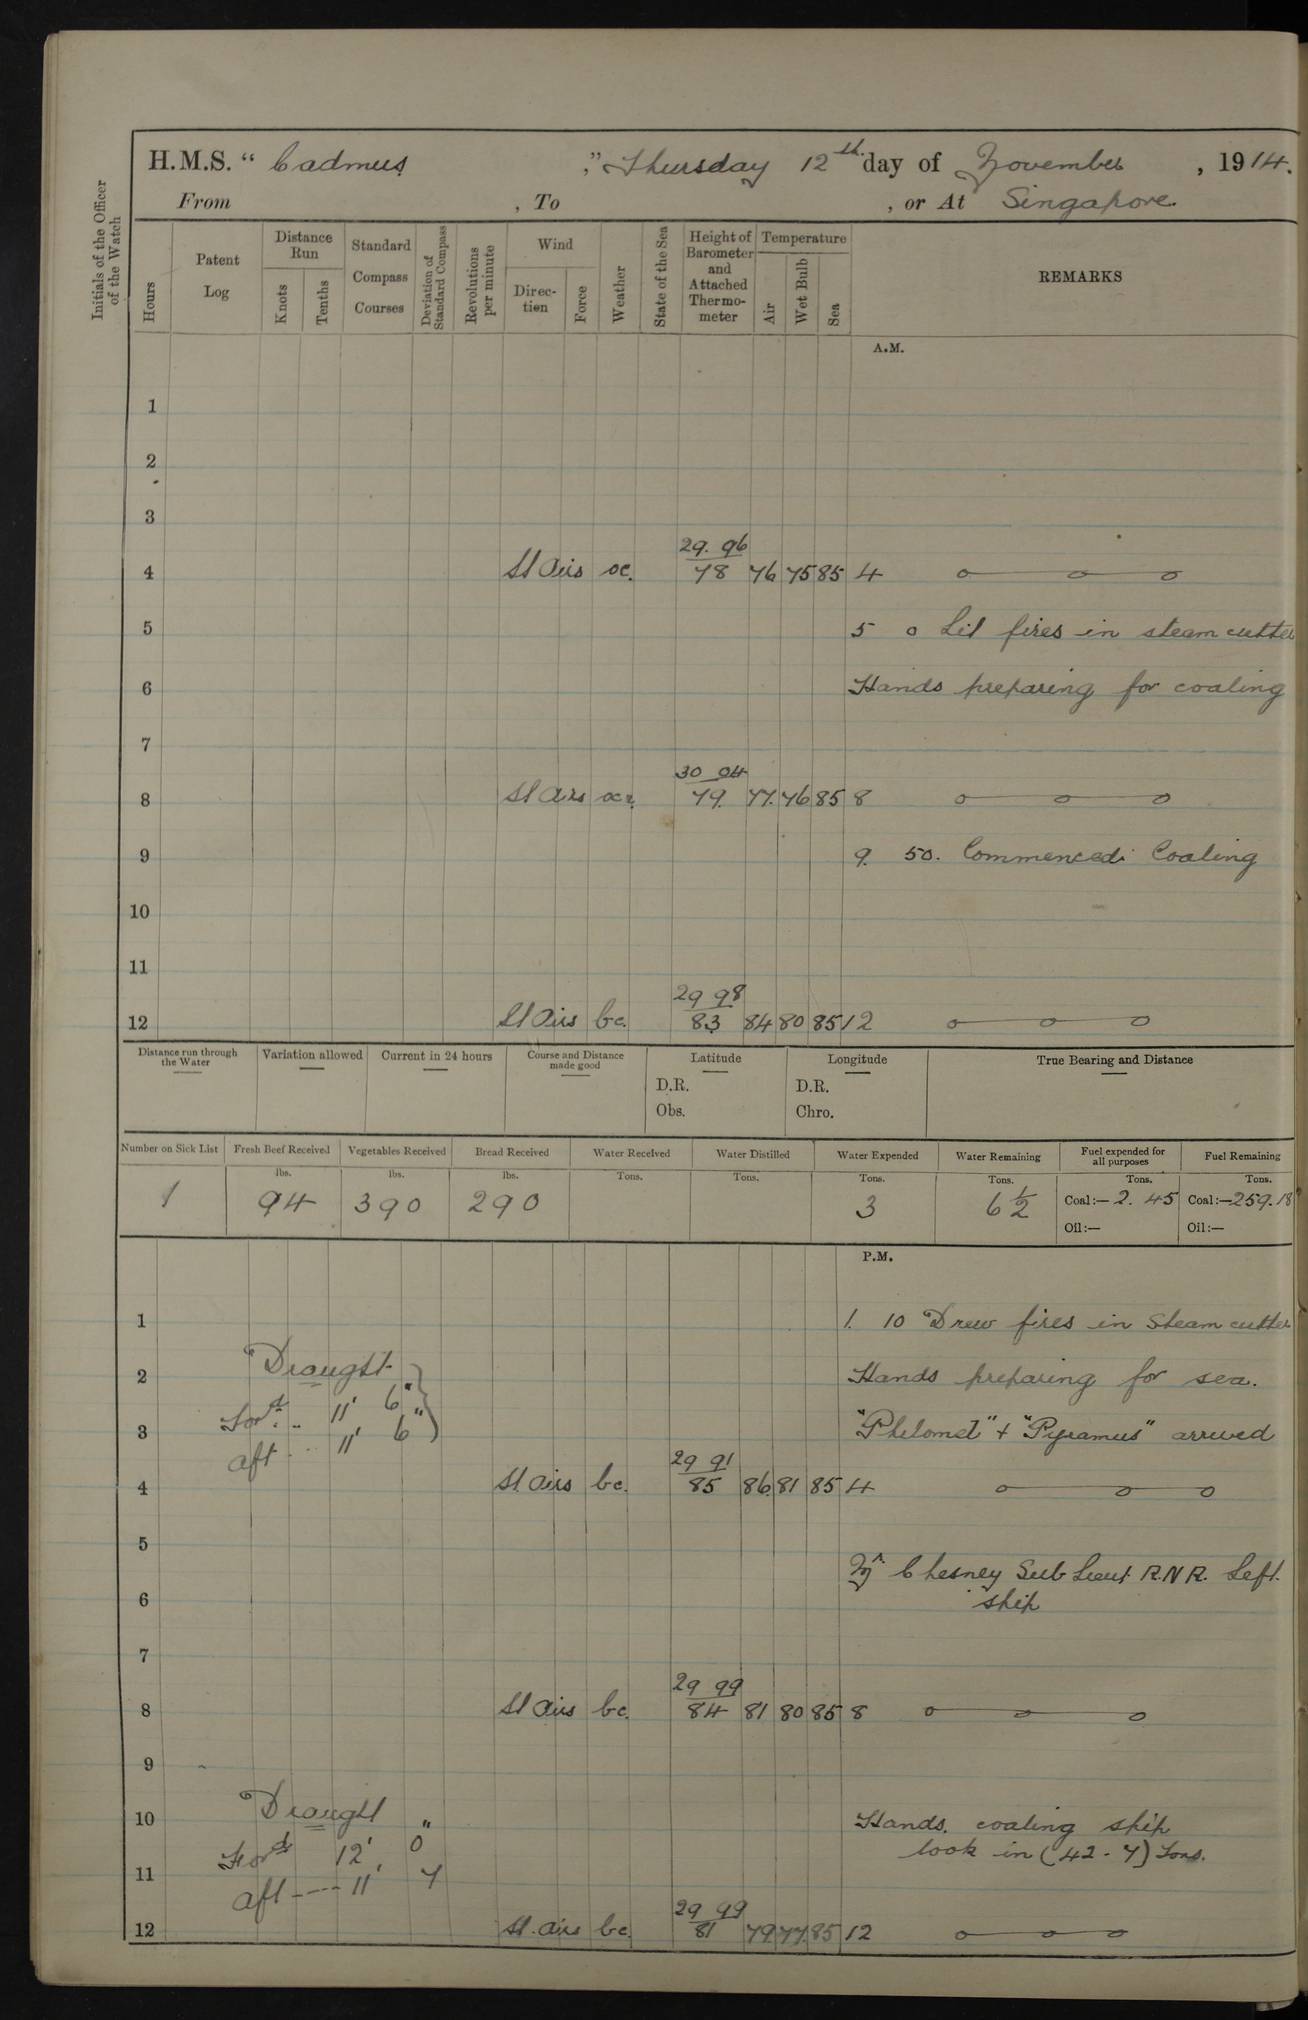 H.M.S. “ Cadmus ,” Thursday 12th day of November , 1914.
From , To , or At Singapore.
Initials of the Officer of the Watch
Hours
Patent Log
Distance Run
Knots
Tenths
Standard Compass Courses
Deviation of Standard Compass
Revolutions per minute
Wind
Direc-tion
Force
Weather
State of the Sea
Height of Barometer and Attached Thermo-meter
Temperature
Air
Wet Bulb
Sea
REMARKS
A.M.
1
2
3
29. 96
4 Lt Airs oc. 78 76 75 85 4
5 5 0 Lit fires in steam cutter
6 Hands preparing for coaling
7
30 04
8 Lt Airs ocr. 79. 77. 76 85 8
9 9. 50. Commenced Coaling
10
11
29 98
12 Lt Airs bc. 83 84 80 85 12
Distance run through the Water
Variation allowed
Current in 24 hours
Course and Distance made good
Latitude
D.R.
Obs.
Longitude
D.R.
Chro.
True Bearing and Distance
Number on Sick List Fresh Beef Received Vegetables Received Bread Received Water Received Water Distilled Water Expended Water Remaining Fuel expended for all purposes Fuel Remaining
lbs. lbs. lbs. Tons. Tons. Tons. Tons. Tons. Tons.
1 94 390 290 3 6 1/2 Coal:— 2. 45 Coal:— 259. 18
Oil:— Oil:—
P.M.
1 1. 10 Drew fires in Steam cutter
Draught
2 Hands preparing for sea.
Ford. .. 11' 6"
3 "Philomel" + "Pyramus" arrived
aft .. 11' 6"
29 91
4 Lt. Airs bc. 85 86 81 85 4
5
Mr. Chesney Sub Lieut R.N.R. Left.
6 ship
7
29 99
8 Lt Airs bc. 84 81 80 85 8
9
Draught
10 Hands. coaling ship
Ford 12' 0"
took in (42 - 7) Tons.
11
aft ---- 11' 7
29 99
12 Lt. airs bc. 81 79 77 85 12